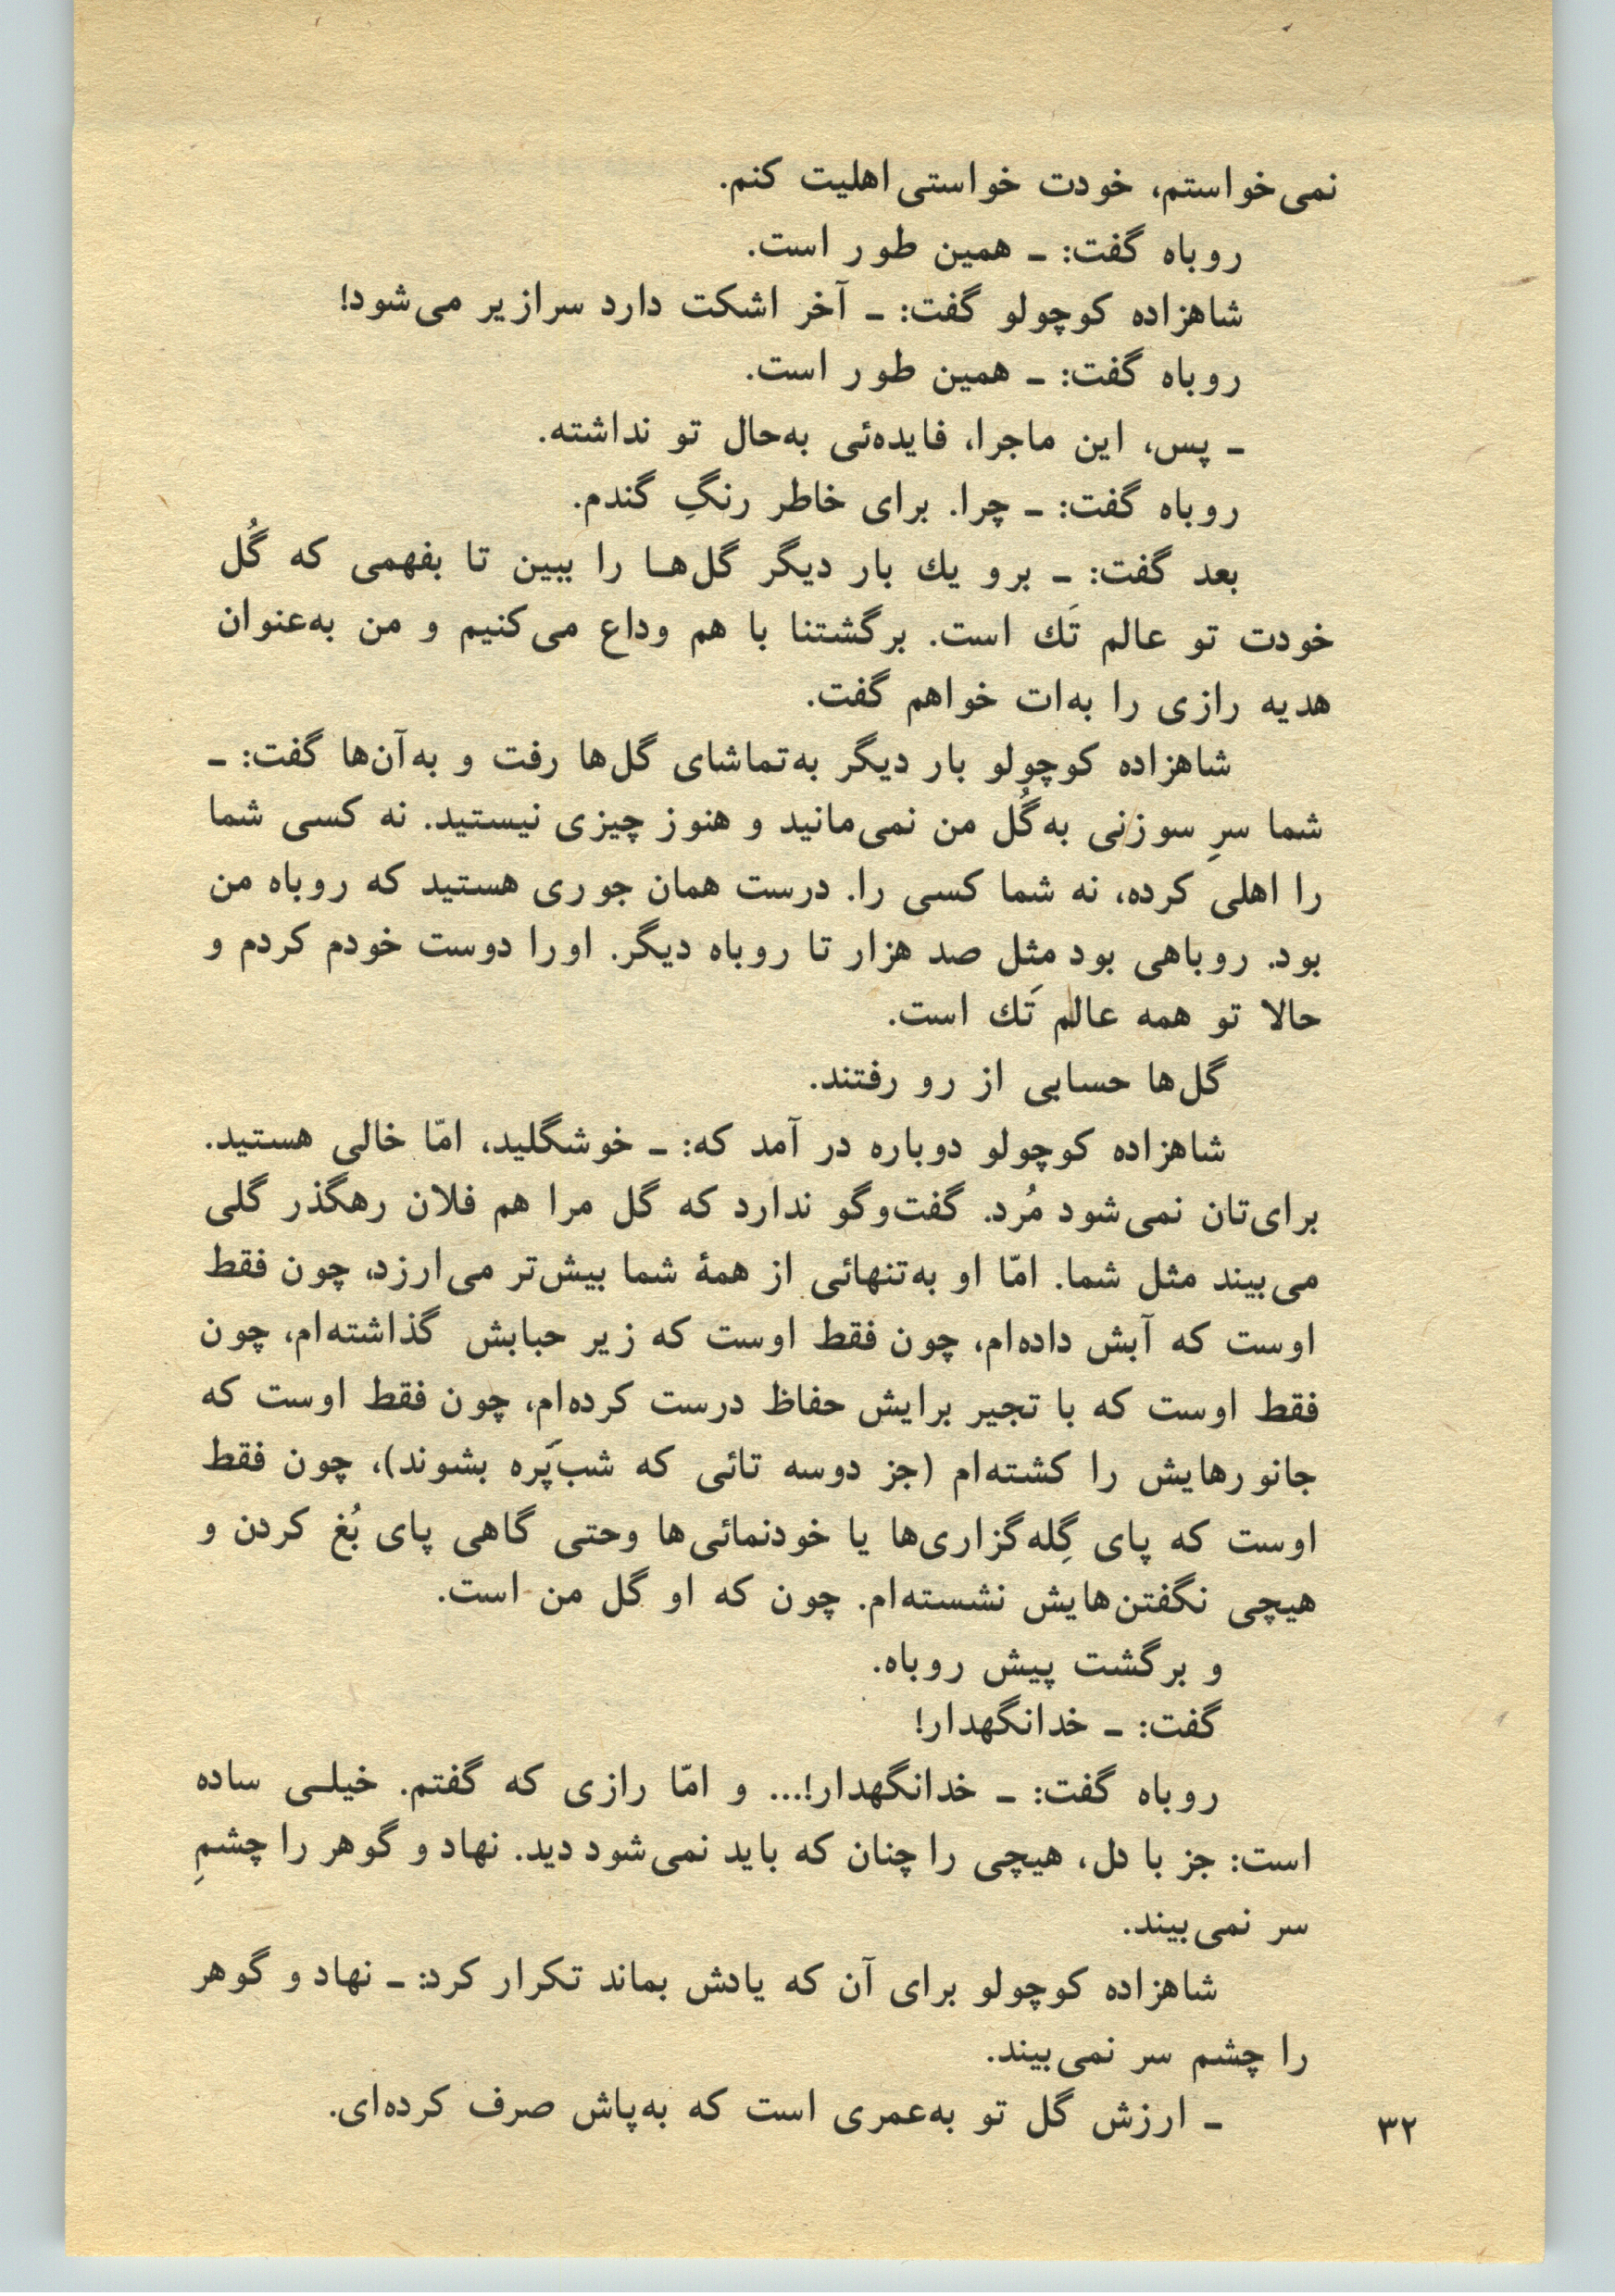 نمی‌خواستم، خودت خواستی اهلیت کنم.
روباه گفت: ـ همین طور است.
شاهزاده کوچولو گفت: ـ آخر اشکت دارد سرازیر می‌شود!
روباه گفت: ـ همین طور است.
ـ پس، این ماجرا، فایده‌ئی به‌حال تو نداشته.
روباه گفت: ـ چرا. برای خاطر رنگِ گندم.
بعد گفت: ـ برو یك بار دیگر گل‌هـا را ببین تا بفهمی که گُل
خودت تو عالم تَك است. برگشتنا با هم وداع می‌کنیم و من به‌عنوان
هدیه رازی را به‌ات خواهم گفت.
شاهزاده کوچولو بار دیگر به‌تماشای گل‌ها رفت و به‌آن‌ها گفت: ـ
شما سرِ سوزنی به‌گُل من نمی‌مانید و هنوز چیزی نیستید. نه کسی شما
را اهلی کرده، نه شما کسی را. درست همان جوری هستید که روباه من
بود. روباهی بود مثل صد هزار تا روباه دیگر. اورا دوست خودم کردم و
حالا تو همه عالم تَك است.
گل‌ها حسابی از رو رفتند.
شاهزاده کوچولو دوباره در آمد که: ـ خوشگلید، امّا خالی هستید.
برای‌تان نمی‌شود مُرد. گفت‌وگو ندارد که گل مرا هم فلان رهگذر گلی
می‌بیند مثل شما. امّا او به‌تنهائی از همهٔ شما بیش‌تر می‌ارزد، چون فقط
اوست که آبش داده‌ام، چون فقط اوست که زیر حبابش گذاشته‌ام، چون
فقط اوست که با تجیر برایش حفاظ درست کرده‌ام، چون فقط اوست که
جانورهایش را کشته‌ام (جز دوسه تائی که شب‌پَره بشوند)، چون فقط
اوست که پای گِله‌گزاری‌ها یا خودنمائی‌ها وحتی گاهی پای بُغ کردن و
هیچی نگفتن‌هایش نشسته‌ام. چون که او گل من است.
و برگشت پیش روباه.
گفت: ـ خدانگهدار!
روباه گفت: ـ خدانگهدار!... و امّا رازی که گفتم. خیلـی ساده
است: جز با دل، هیچی را چنان که باید نمی‌شود دید. نهاد و گوهر را چشمِ
سر نمی‌بیند.
شاهزاده کوچولو برای آن که یادش بماند تکرار کرد: ـ نهاد و گوهر
را چشم سر نمی‌بیند.
ـ ارزش گل تو به‌عمری است که به‌پاش صرف کرده‌ای.
۳۲